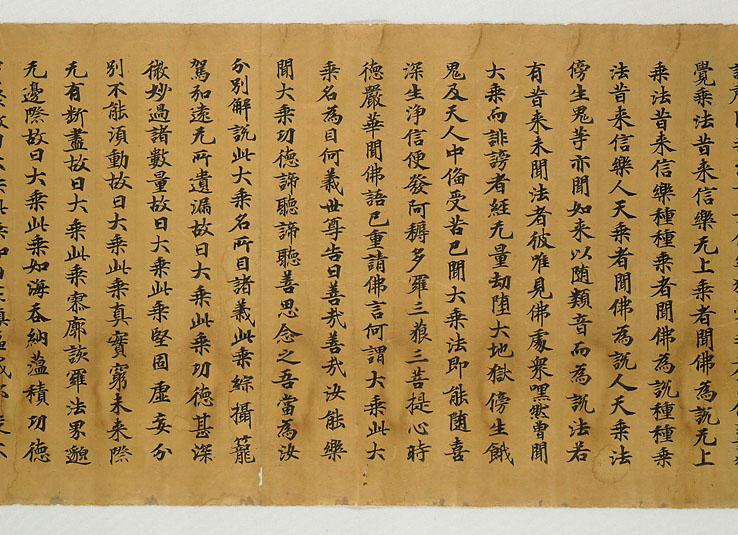 覺乘法昔来信樂无上乘者聞佛為說无上
乘法昔来信樂種種乘者聞佛為說種種乘
法昔来信樂人天乘者聞佛為說人天乘法
傍生鬼等亦聞如来以随類音而為說法若
有昔来未聞法者彼唯見佛處衆嘿然曽聞
大乘而誹謗者経无量劫堕大地獄傍生餓
鬼及天人中俻受苦已聞大乘法即能随喜
深生浄信便發阿耨多羅三藐三菩提心時
德嚴華聞佛語已重請佛言何謂大乘此大
乘名為目何義世尊告曰善哉善哉汝能樂
聞大乘功德諦聽諦聽善思念之吾當為汝
分別解說此大乘名所目諸義此乘綜攝籠
駕加遠无所遺漏故曰大乘此乘功德甚深
微妙過諸數量故曰大乘此乘堅固虚妄分
別不能須動故曰大乘此乘真實窮未来際
无有断盡故曰大乘此乘寥廓該羅法界邈
无邊際故曰大乘此乘如海吞納藴積功德